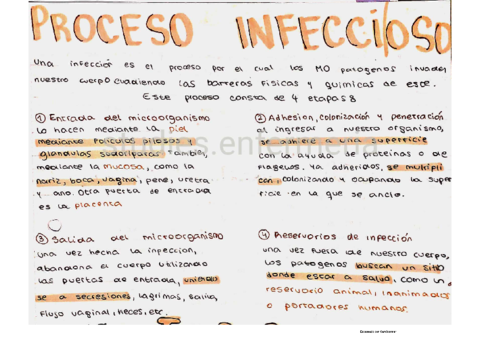 PROCESO INFECCIOSO
Una infección es el proceso por el cual los MO patógenos invaden
nuestro cuerpo evadiendo las barreras físicas y químicas de este.
Este proceso consta de 4 etapas:
① Entrada del microorganismo
Lo hacen mediante la piel
mediante folículos pilosos y
glándulas sudoríparas. También,
mediante la mucosa, como la
nariz, boca, vagina, pene, uretra
y ano. Otra puerta de entrada
es la placenta
② Adhesión, colonización y penetración
Al ingresar a nuestro organismo,
se adhiere a una superficie
con la ayuda de proteínas o de
flagelos. Ya adheridos, se multipli
can, colonizando y ocupando la super
ficie en la que se ancló.
③ Salida del microorganismo
una vez hecha la infección,
abandona el cuerpo utilizando
las puertas de entrada, uniendo
se a secresiones, lágrimas, saliva,
flujo vaginal, heces, etc.
④ Reservorios de infección
una vez fuera de nuestro cuerpo,
los patógenos buscan un sitio
donde estar a salvo, como un
reservorio animal, inanimados
o portadores humanos.